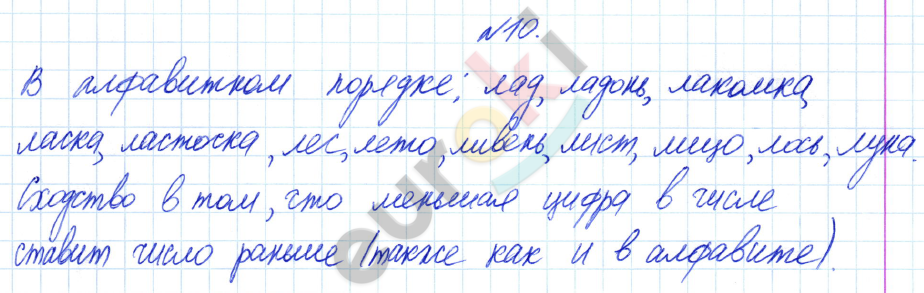 №10.
В алфавитном порядке: лад, ладонь, лакомка,
ласка, ластоска, лес, лето, ливень, лист, лицо, лось, луна.
Сходство в том, что меньшая цифра в числе
ставит число раньше (также как и в алфавите).
euroki